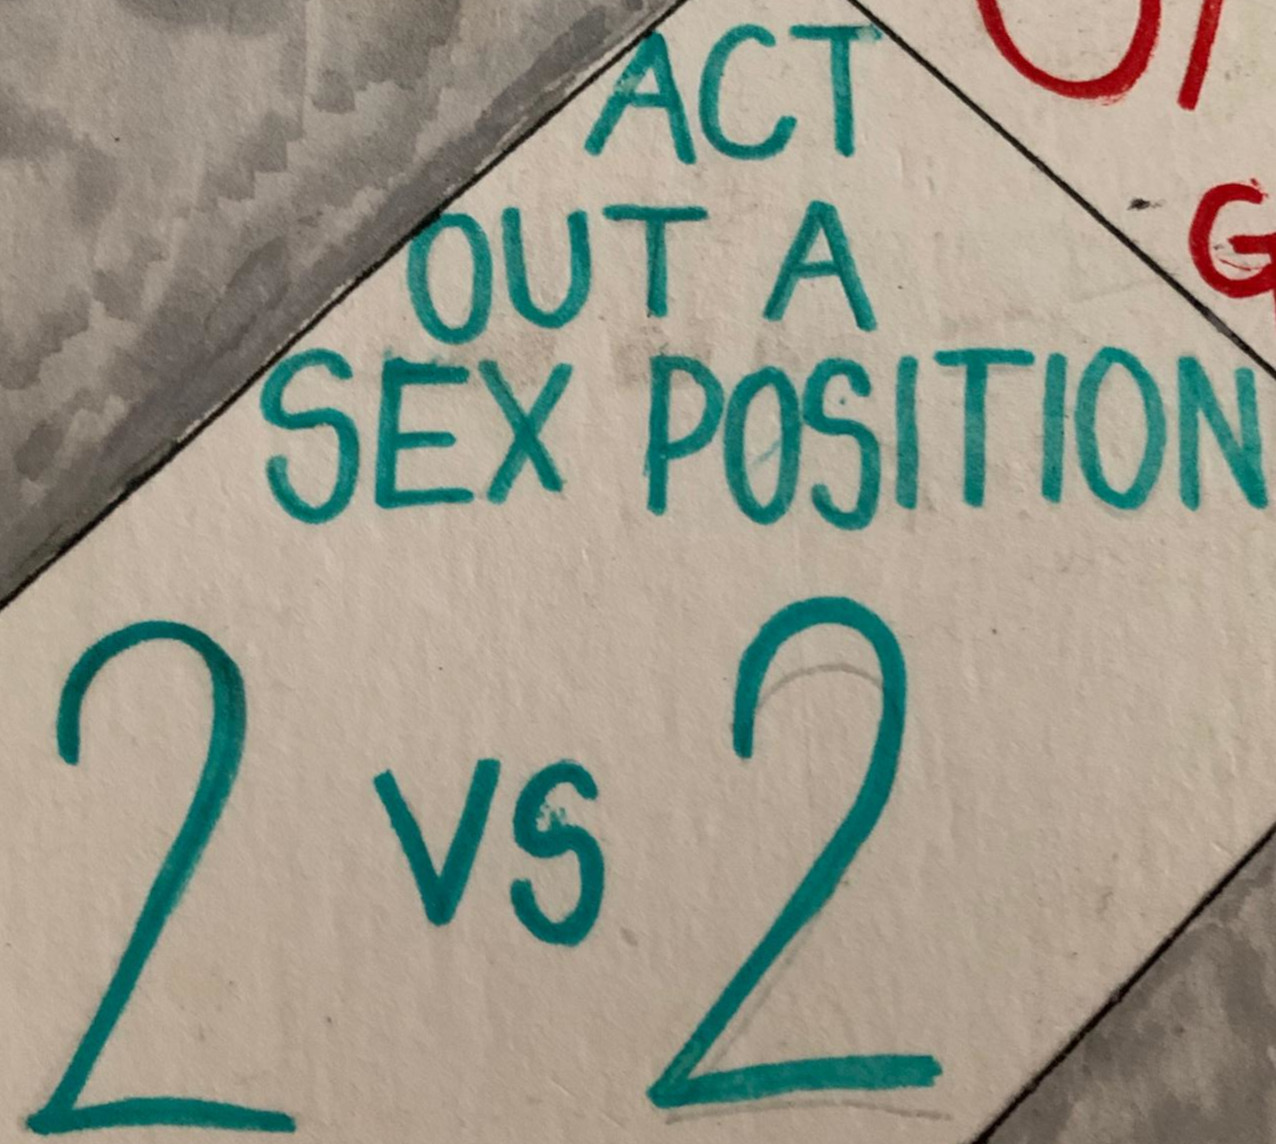 ACT
OUT A
SEX POSITION
2 VS 2